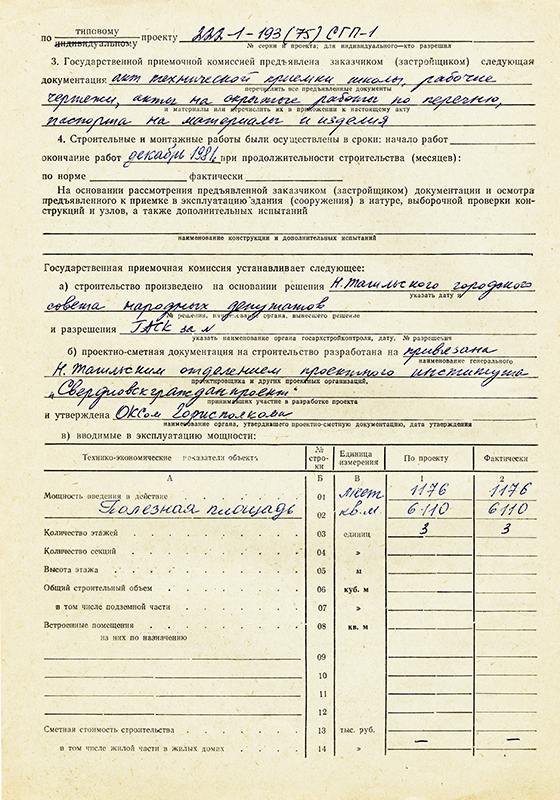 типовому
по индивидуальному проекту 222-1-193 (75) СГП-1
№ серии и проекта; для индивидуального—кто разрешил
3. Государственной приемочной комиссией предъявлена заказчиком (застройщиком) следующая
документация акт технической приемки школы, рабочие
перечислить все предъявленные документы
чертежи, акты на скрытые работы по перечню,
и материалы или перечислить их в приложении к настоящему акту
паспорта на материалы и изделия
4. Строительные и монтажные работы были осуществлены в сроки: начало работ
окончание работ декабрь 1981, при продолжительности строительства (месяцев):
по норме фактически
На основании рассмотрения предъявленной заказчиком (застройщиком) документации и осмотра
предъявленного к приемке в эксплуатацию здания (сооружения) в натуре, выборочной проверки кон-
струкций и узлов, а также дополнительных испытаний
наименование конструкции и дополнительных испытаний
Государственная приемочная комиссия устанавливает следующее:
а) строительство произведено на основании решения Н.Тагильского городского
указать дату и
совета народных депутатов
№ решения, органа, вынесшего решение
и разрешения ГАСК за №
указать наименование органа госархстройконтроля, дату, № разрешения
б) проектно-сметная документация на строительство разработана на привязана
наименование генерального
Н.Тагильским отделением проектного института
проектировщика и других проектных организаций,
„Свердловскгражданпроект"
принимавших участие в разработке проекта
и утверждена ОКСом Горисполкома
наименование органа, утвердившего проектно-сметную документацию, дата утверждения
в) вводимые в эксплуатацию мощности:
Технико-экономические показатели объекта № стро-ки Единица измерения По проекту Фактически
А Б В 1 2
Мощность введения в действие 01 мест 1176 1176
Полезная площадь 02 кв.м. 6110 6110
Количество этажей 03 единиц 3 3
Количество секций 04 »
Высота этажа 05 м
Общий строительный объем 06 куб. м
в том числе подземной части 07 »
Встроенные помещения 08 кв. м
из них по назначению
09
10
11
12
Сметная стоимость строительства 13 тыс. руб. — —
в том числе жилой части в жилых домах 14 »